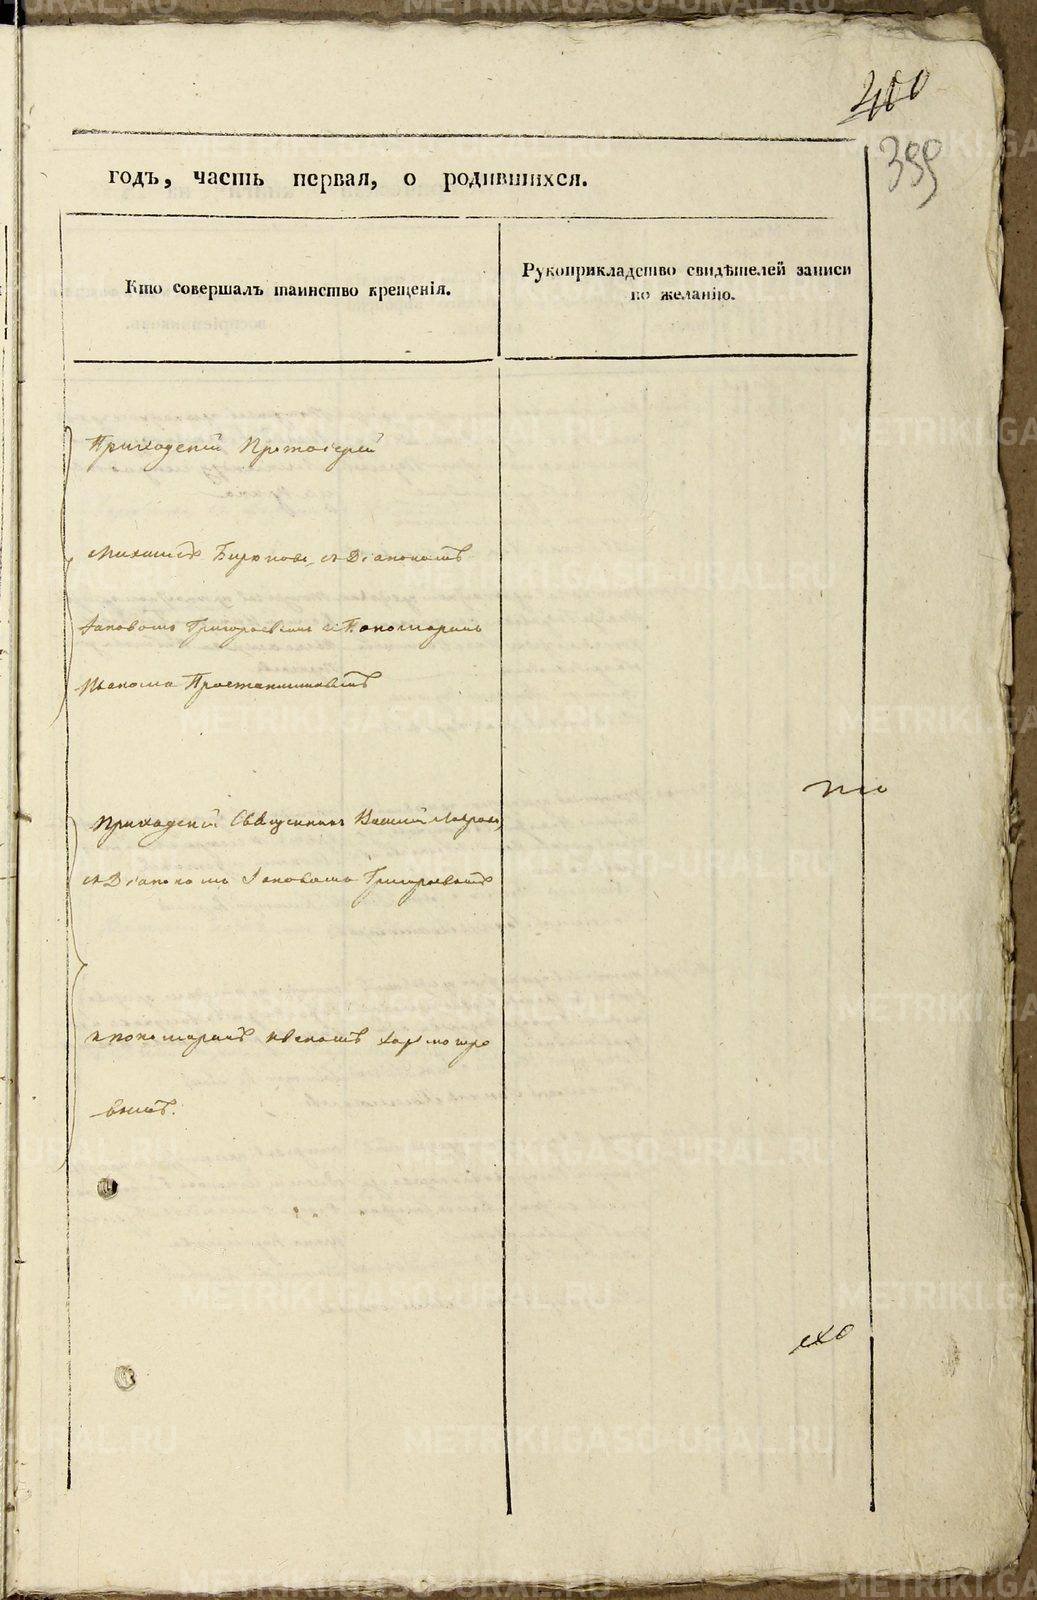 400
399
годъ, часть первая, о родившихся.
Кто совершалъ таинство крещенія.
Рукоприкладство свидѣтелей записи
по желанію.
Приходскій Протоіерей
Михаилъ Бирюковъ съ Діакономъ
Іаковомъ Григорьевымъ и Пономаремъ
Иваномъ
Приходскій Священникъ Василій
съ Діакономъ Іаковомъ Григорьевымъ
и пономаремъ
вымъ.
METRIKI.GASO-URAL.RU